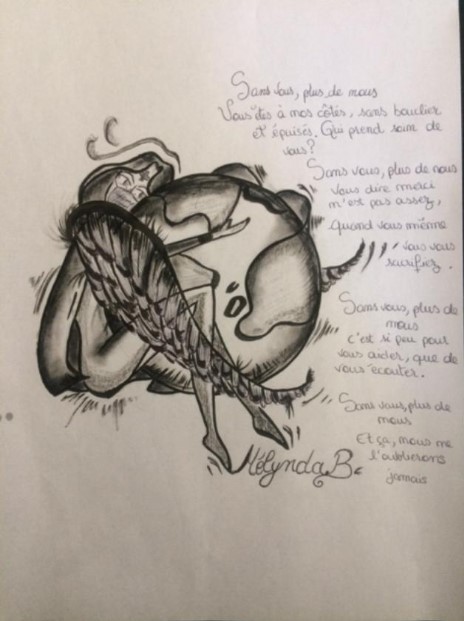 Sans vous, plus de nous
Vous êtes à nos côtés, sans bouclier
et épuisés. Qui prend soin de
vous?
Sans vous, plus de nous
vous dire merci
n'est pas assez,
quand vous même
vous vous
sacrifiez.
Sans vous, plus de
nous
c'est si peu pour
vous aider, que de
vous écouter.
Sans vous, plus de
nous
Et ça, nous ne
l'oublierons
jamais
Mélynda B.